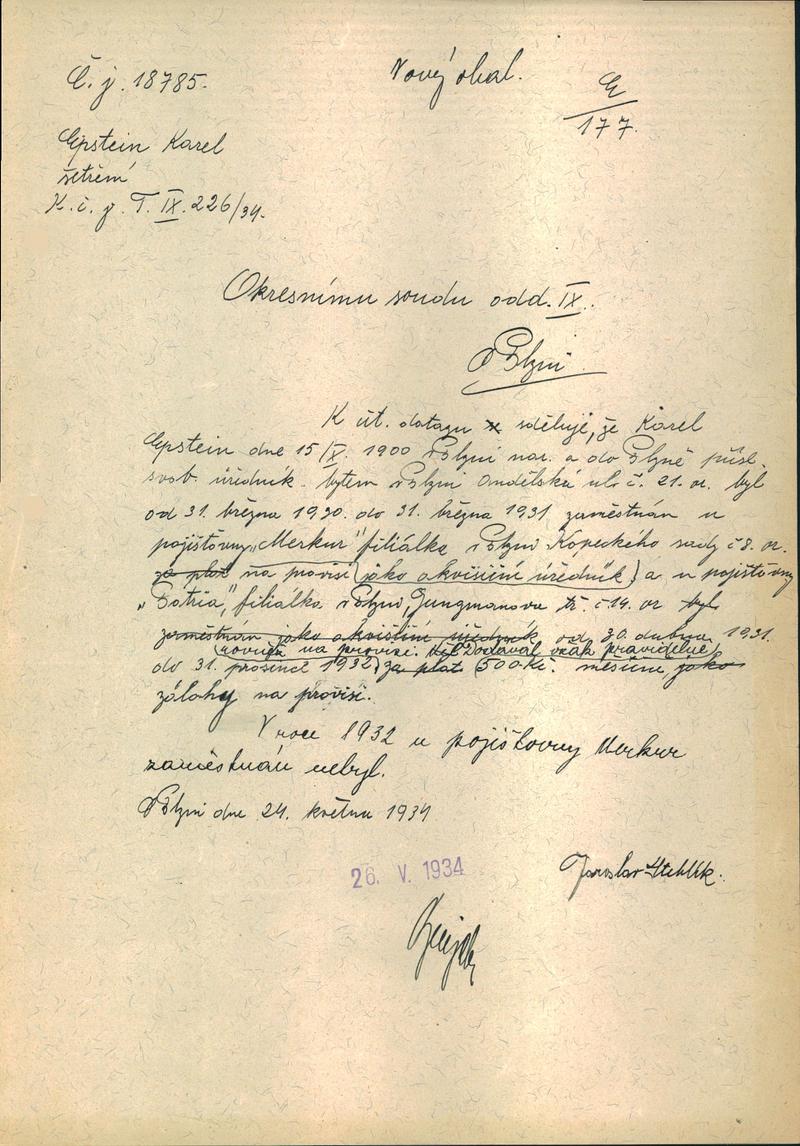 Č. j. 18785.
Nový obal.
E
177.
Epstein Karel
šetření
K. č. j. T. IX. 226/34.
Okresnímu soudu odd. IX.
v Plzni
K út. dotazu sděluji, že Karel
Epstein dne 15/X. 1900 v Plzni nar. a do Plzně přísl.
svob. úředník. bytem v Plzni Andělská ul. č. 21. or. byl
od 31. března 1930. do 31. března 1931 zaměstnán u
pojišťovny „Merkur" filiálka v Plzni Kopeckého sady č 8. or.
za plat na provisi (jako akvisiční úředník) a u pojišťovny
„Patria", filiálka v Plzni, Jungmanova tř. č 14. or byl
zaměstnán jako akvisiční úředník od 30. dubna 1931.
rovněž na provise. však pravidelně
do 31. prosince 1932, za plat 500 Kč. měsíčně, jako
zálohy na provisi.
V roce 1932 u pojišťovny Merkur
zaměstnán nebyl.
V Plzni dne 24. května 1934
26. V. 1934
Jaroslav Stehlík.